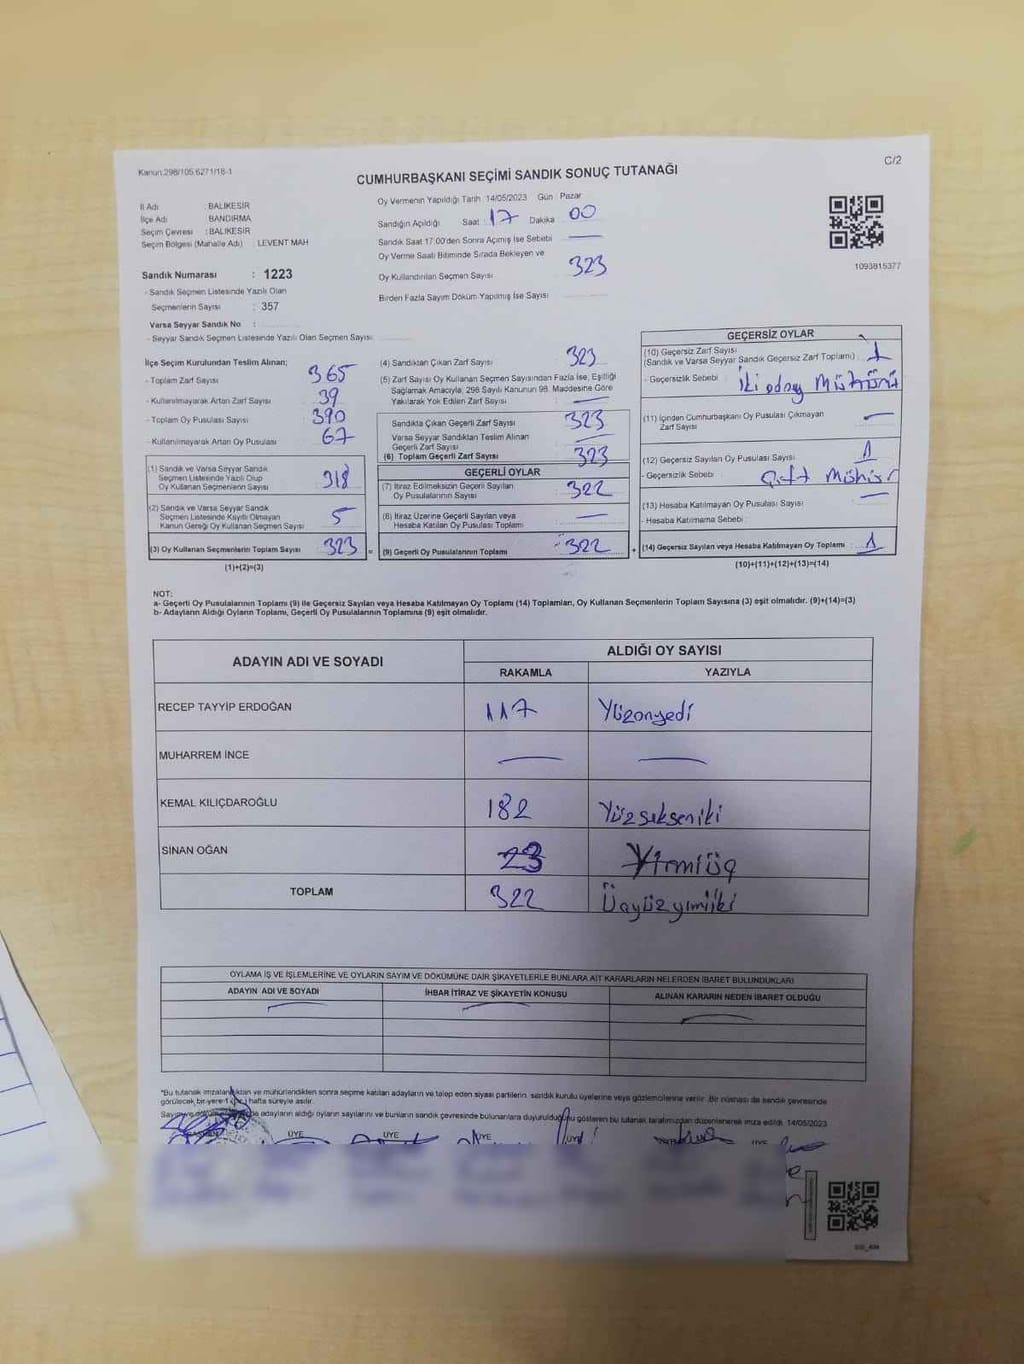 Kanun.298/105.6271/18-1
C/2
CUMHURBAŞKANI SEÇİMİ SANDIK SONUÇ TUTANAĞI
İl Adı : BALIKESİR
İlçe Adı : BANDIRMA
Seçim Çevresi : BALIKESİR
Seçim Bölgesi (Mahalle Adı) : LEVENT MAH
Sandık Numarası : 1223
- Sandık Seçmen Listesinde Yazılı Olan
Seçmenlerin Sayısı : 357
Varsa Seyyar Sandık No :
- Seyyar Sandık Seçmen Listesinde Yazılı Olan Seçmen Sayısı:
Oy Vermenin Yapıldığı Tarih 14/05/2023 Gün : Pazar
Sandığın Açıldığı Saat 17 Dakika 00
Sandık Saat 17:00'den Sonra Açımış İse Sebebi
Oy Verme Saati Bitiminde Sırada Bekleyen ve
Oy Kullandırılan Seçmen Sayısı 323
Birden Fazla Sayım Döküm Yapılmış İse Sayısı
1093815377
İlçe Seçim Kurulundan Teslim Alınan;
- Toplam Zarf Sayısı 365
- Kullanılmayarak Artan Zarf Sayısı 39
- Toplam Oy Pusulası Sayısı 390
- Kullanılmayarak Artan Oy Pusulası 67
(1) Sandık ve Varsa Seyyar Sandık
Seçmen Listesinde Yazılı Olup
Oy Kullanan Seçmenlerin Sayısı 318
(2) Sandık ve Varsa Seyyar Sandık
Seçmen Listesinde Kayıtlı Olmayan
Kanun Gereği Oy Kullanan Seçmen Sayısı 5
(3) Oy Kullanan Seçmenlerin Toplam Sayısı 323 =
(1)+(2)=(3)
(4) Sandıktan Çıkan Zarf Sayısı 323
(5) Zarf Sayısı Oy Kullanan Seçmen Sayısından Fazla İse, Eşitliği
Sağlamak Amacıyla; 298 Sayılı Kanunun 98. Maddesine Göre
Yakılarak Yok Edilen Zarf Sayısı
Sandıkta Çıkan Geçerli Zarf Sayısı 323
Varsa Seyyar Sandıktan Teslim Alınan
Geçerli Zarf Sayısı
(6) Toplam Geçerli Zarf Sayısı 323
GEÇERLİ OYLAR
(7) İtiraz Edilmeksizin Geçerli Sayılan
Oy Pusulalarının Sayısı 322
(8) İtiraz Üzerine Geçerli Sayılan veya
Hesaba Katılan Oy Pusulası Toplamı
(9) Geçerli Oy Pusulalarının Toplamı 322 +
GEÇERSİZ OYLAR
(10) Geçersiz Zarf Sayısı
(Sandık ve Varsa Seyyar Sandık Geçersiz Zarf Toplamı) : 1
- Geçersizlik Sebebi : İki aday Mühürü
(11) İçinden Cumhurbaşkanı Oy Pusulası Çıkmayan
Zarf Sayısı
(12) Geçersiz Sayılan Oy Pusulası Sayısı : 1
- Geçersizlik Sebebi : Çift Mühür
(13) Hesaba Katılmayan Oy Pusulası Sayısı :
- Hesaba Katılmama Sebebi :
(14) Geçersiz Sayılan veya Hesaba Katılmayan Oy Toplamı : 1
(10)+(11)+(12)+(13)=(14)
NOT:
a- Geçerli Oy Pusulalarının Toplamı (9) ile Geçersiz Sayılan veya Hesaba Katılmayan Oy Toplamı (14) Toplamları, Oy Kullanan Seçmenlerin Toplam Sayısına (3) eşit olmalıdır. (9)+(14)=(3)
b- Adayların Aldığı Oyların Toplamı, Geçerli Oy Pusulalarının Toplamına (9) eşit olmalıdır.
ADAYIN ADI VE SOYADI ALDIĞI OY SAYISI
RAKAMLA YAZIYLA
RECEP TAYYİP ERDOĞAN 117 Yüzonyedi
MUHARREM İNCE
KEMAL KILIÇDAROĞLU 182 Yüzsekseniki
SİNAN OĞAN 23 Yirmiüç
TOPLAM 322 Üçyüzyirmiiki
OYLAMA İŞ VE İŞLEMLERİNE VE OYLARIN SAYIM VE DÖKÜMÜNE DAİR ŞİKAYETLERLE BUNLARA AİT KARARLARIN NELERDEN İBARET BULUNDUKLARI
ADAYIN ADI VE SOYADI İHBAR İTİRAZ VE ŞİKAYETİN KONUSU ALINAN KARARIN NEDEN İBARET OLDUĞU
*Bu tutanak imzalandıktan ve mühürlendikten sonra seçime katılan adayların ve talep eden siyasi partilerin, sandık kurulu üyelerine veya gözlemcilerine verilir. Bir nüshası da sandık çevresinde
görülecek bir yere 1 (bir) hafta süreyle asılır.
Sayım ve dökümde adayların aldığı oyların sayılarını ve bunların sandık çevresinde bulunanlara duyurulduğunu gösteren bu tutanak tarafımızdan düzenlenerek imza edildi. 14/05/2023
ÜYE ÜYE ÜYE ÜYE ÜYE